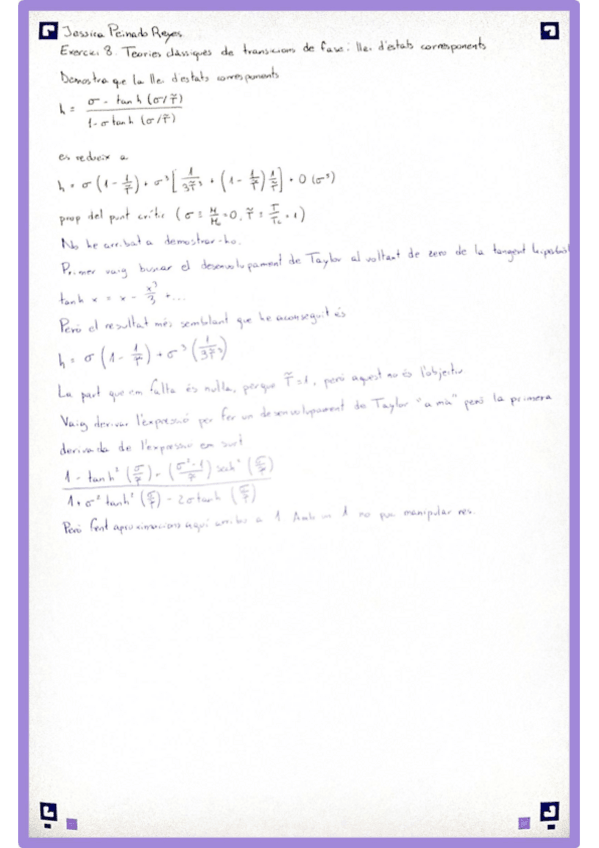 Jessica Peinado Reyes
Exercici 8. Teories clàssiques de transicions de fase: llei d'estats corresponents
Demostra que la llei d'estats corresponents
h = (σ - tanh (σ/T̃)) / (1 - σ tanh (σ/T̃))
es redueix a
h = σ (1 - 1/T̃) + σ³ [1/(3T̃³) + (1 - 1/T̃) 1/T̃] + O (σ⁵)
prop del punt crític (σ = M/M₀ = 0, T̃ = T/Tc = 1)
No he arribat a demostrar-ho.
Primer vaig buscar el desenvolupament de Taylor al voltant de zero de la tangent
tanh x = x - x³/3 + ...
Però el resultat més semblant que he aconseguit és
h = σ (1 - 1/T̃) + σ³ (1/(3T̃³))
La part que em falta és nul·la, perquè T̃ = 1, però aquest no és l'objectiu.
Vaig derivar l'expressió per fer un desenvolupament de Taylor "a mà" però la primera
derivada de l'expressió em surt
(1 - tanh² (σ/T̃) + (σ²-1) sech² (σ/T̃)) / (1 + σ² tanh² (σ/T̃) - 2σ tanh (σ/T̃))
Però fent aproximacions aquí arribo a 1. Amb un 1 no puc manipular res.